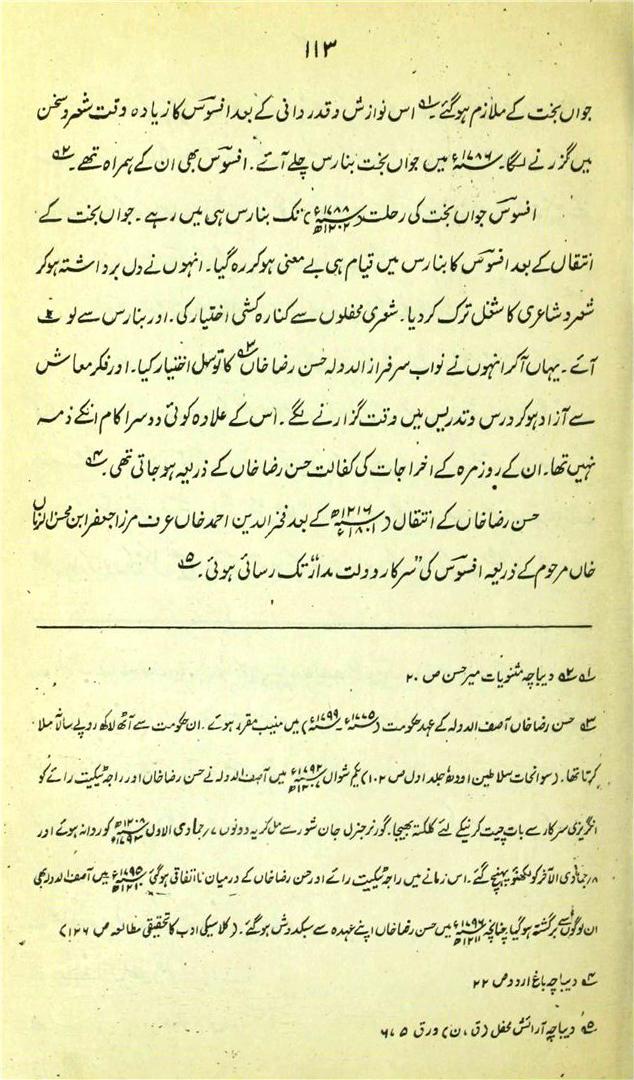 ۱۱۳
جواں بخت کے ملازم ہوگئے۔۱؎ اس نوازش وقدردانی کے بعد افسوسؔ کا زیادہ وقت شعر وسخن
میں گزرنے لگا۔ ۱۷۸۶ء میں جواں بخت بنارس چلے آئے۔ افسوسؔ بھی ان کے ہمراہ تھے۔۲؎
افسوسؔ جواں بخت کی رحلت (۱۷۸۸ء ۱۲۰۲ھ) تک بنارس ہی میں رہے۔ جواں بخت کے
انتقال کے بعد افسوسؔ کا بنارس میں قیام ہی بے معنی ہوکر رہ گیا۔ انہوں نے دل برداشتہ ہوکر
شعر و شاعری کا شغل ترک کردیا۔ شعری محفلوں سے کنارہ کشی اختیار کی۔ اور بنارس سے لوٹ
آئے۔ یہاں آکر انہوں نے نواب سرفراز الدولہ حسن رضا خاں۳؎ کا توسل اختیار کیا۔ اور فکر معاش
سے آزاد ہوکر درس وتدریس میں وقت گزارنے لگے۔ اس کے علاوہ کوئی دوسرا کام انکے ذمہ
نہیں تھا۔ ان کے روزمرہ کے اخراجات کی کفالت حسن رضا خاں کے ذریعہ ہوجاتی تھی۔۴؎
حسن رضا خاں کے انتقال (۱۲۱۶ھ ۱۸۰۱ء) کے بعد فخر الدین احمد خاں عرف مرزا جعفر ابن محسن الزماں
خاں مرحوم کے ذریعہ افسوسؔ کی "سرکار دولت مدار" تک رسائی ہوئی۔۵؎
۱؎ ۲؎ دیباچہ مثنویات میر حسن ص ۲۰
۳؎ حسن رضا خاں آصف الدولہ کے عہد حکومت (۱۷۷۵ء ۱۷۹۹ء) میں منیب مقرر ہوئے۔ ان حکومت سے آٹھ لاکھ روپے سالانہ ملا
کرتا تھا۔ (سوانحات سلاطین اودھ جلد اول ص ۱۰۲) یکم شوال ۱۷۹۲ء میں آصف الدولہ نے حسن رضا خاں اور راجہ ٹیکیت رائے کو
انگریزی سرکار سے بات چیت کرنیکے لئے کلکتہ بھیجا۔ گورنر جنرل جان شور سے مل کر یہ دونوں ۷/جمادی الاول ۱۲۰۸ھ ۱۷۹۳ء کو روانہ ہوئے اور
۸/جمادی الآخر کو لکھنؤ پہنچ گئے۔ اس زمانے میں راجہ ٹیکیت رائے اور حسن رضا خاں کے درمیان نااتفاقی ہوگئی ۱۷۹۵ء ۱۲۱۰ھ میں آصف الدولہ بھی
ان لوگوں سے برگشتہ ہوگیا چنانچہ ۱۷۹۶ء ۱۲۱۱ھ میں حسن رضا خاں اپنے عہدہ سے سبکدوش ہوگئے۔ (کلاسیکی ادب کا تحقیقی مطالعہ ص ۱۲۶)
۴؎ دیباچہ باغ اردو ص ۲۲
۵؎ دیباچہ آرائش محفل (ق، ن) ورق ۵، ۶